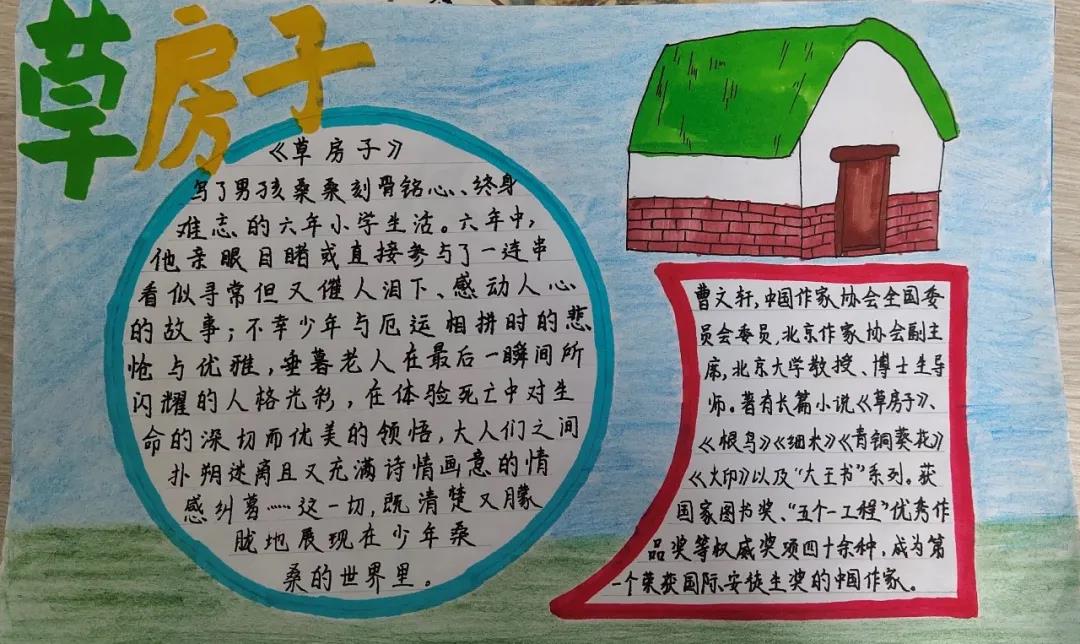 草房子
《草房子》
写了男孩桑桑刻骨铭心、终身
难忘的六年小学生活。六年中,
他亲眼目睹或直接参与了一连串
看似寻常但又催人泪下、感动人心
的故事;不幸少年与厄运相拼时的悲
怆与优雅,垂暮老人在最后一瞬间所
闪耀的人格光彩,在体验死亡中对生
命的深切而优美的领悟,大人们之间
扑朔迷离且又充满诗情画意的情
感纠葛……这一切,既清楚又朦
胧地展现在少年桑
桑的世界里。
曹文轩,中国作家协会全国委
员会委员,北京作家协会副主
席,北京大学教授、博士生导
师。著有长篇小说《草房子》、
《根鸟》《细米》《青铜葵花》
《大印》以及“大王书”系列。获
国家图书奖、“五个一工程”优秀作
品奖等权威奖项四十余种,成为第
一个荣获国际安徒生奖的中国作家。